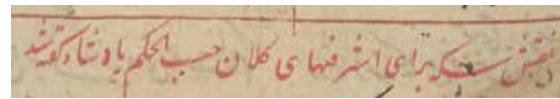 نقش سکه برای اشرفیهای کلان حسب الحکم پادشاه گفته شد